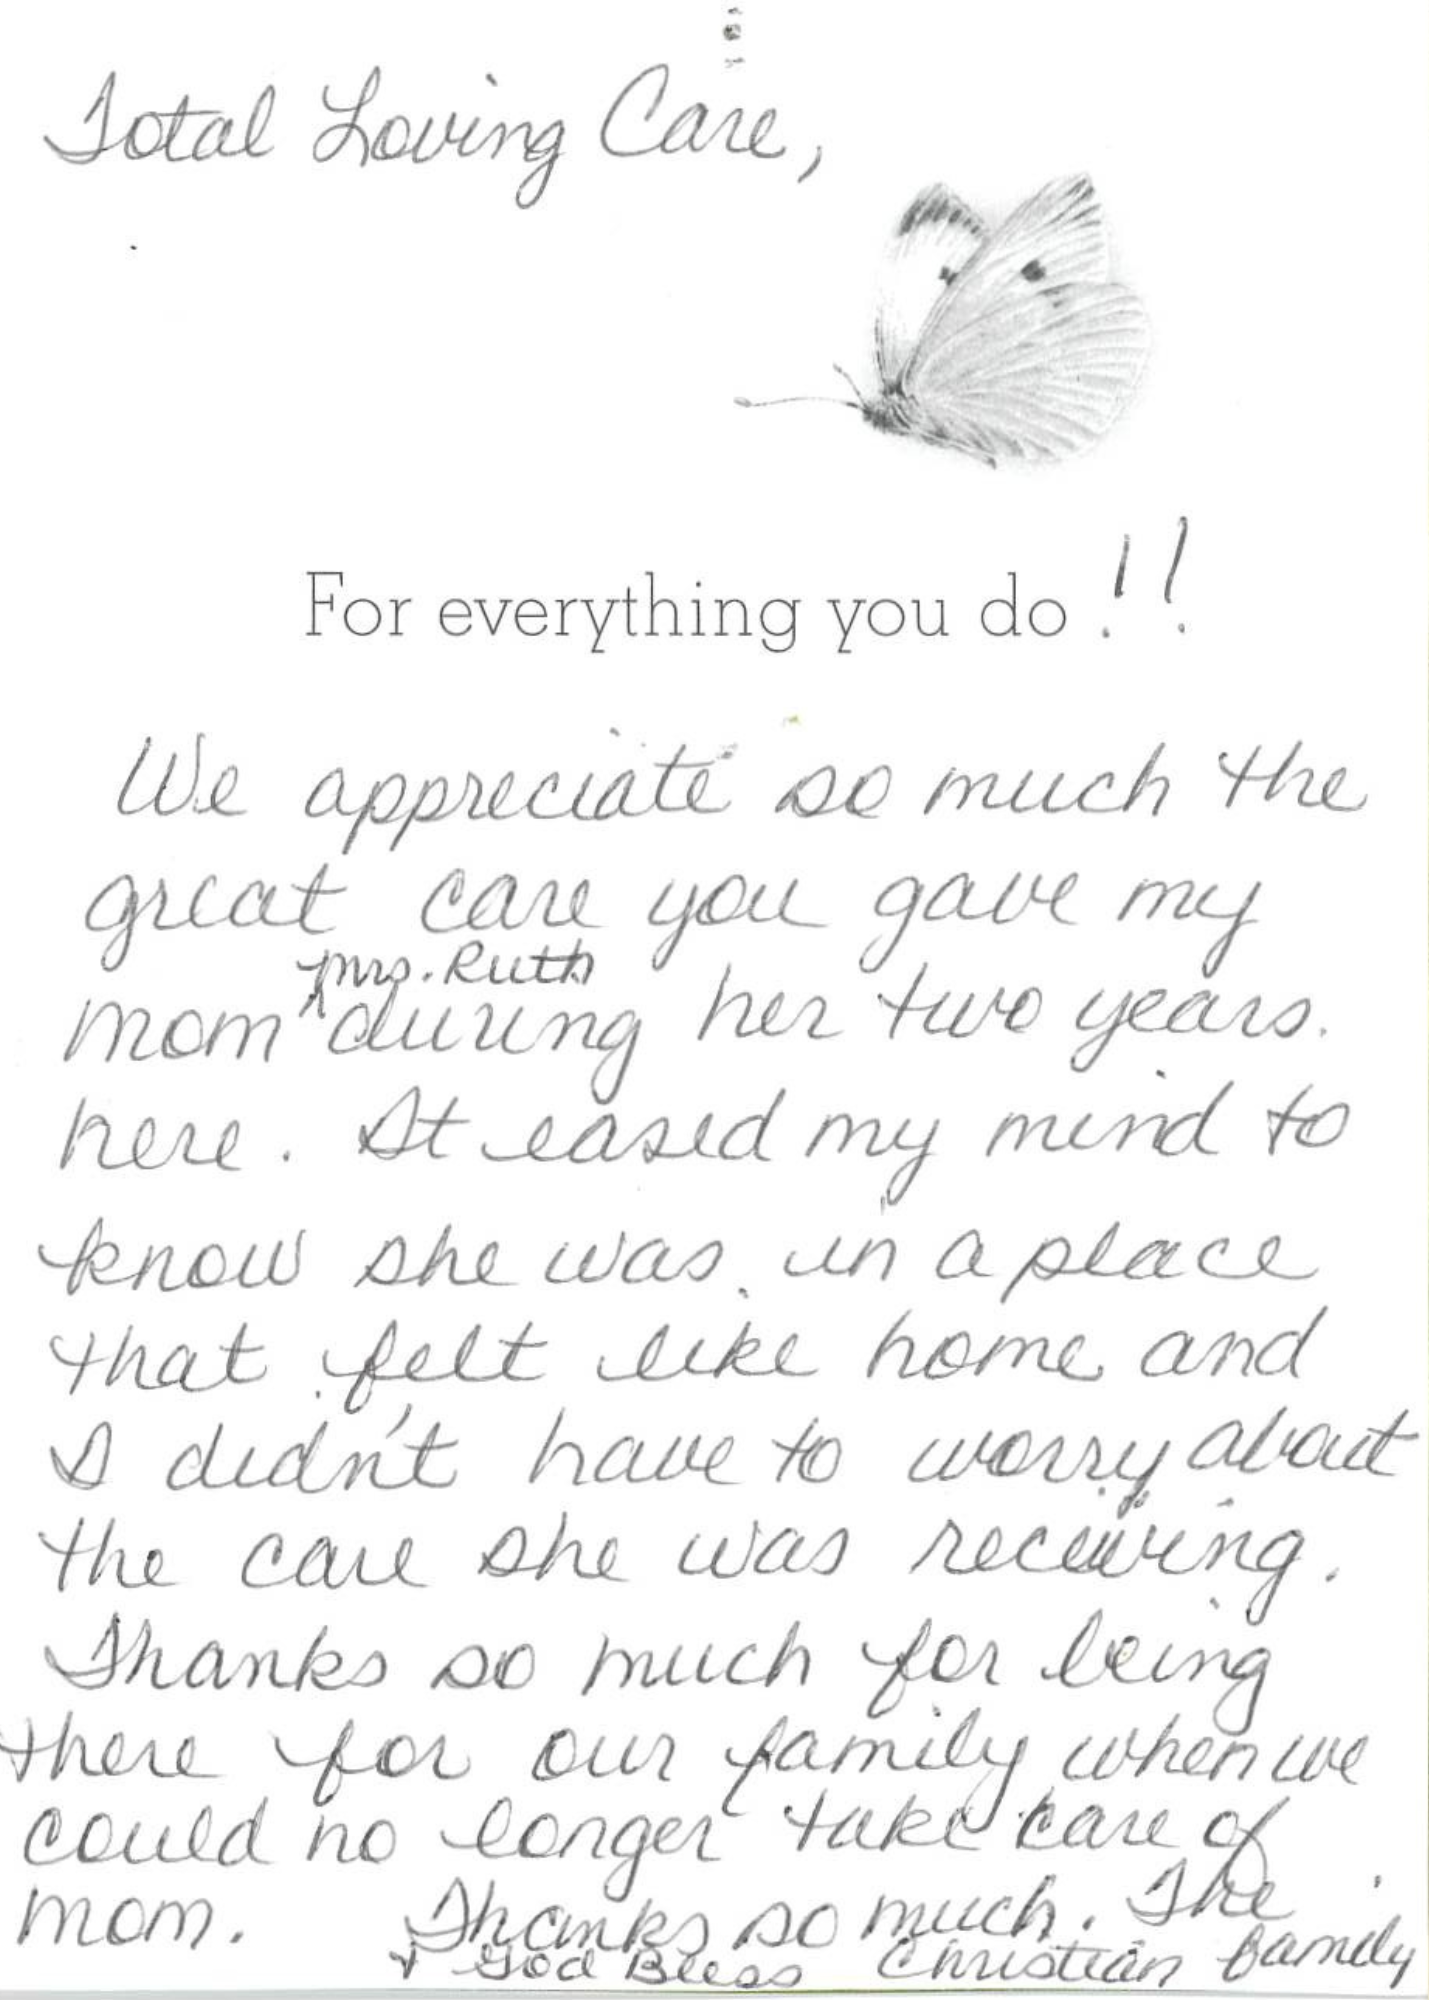 Total Loving Care,
For everything you do!!
We appreciate so much the
great care you gave my
Mrs. Ruth
mom ^ during her two years
here. It eased my mind to
know she was in a place
that felt like home and
I didn't have to worry about
the care she was receiving.
Thanks so much for being
there for our family when we
could no longer take care of
mom. Thanks so much. The
+ God Bless Christian family